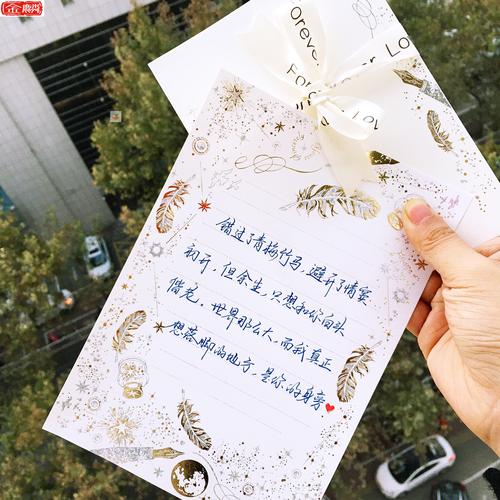 金麟
Forever Love
Forever
错过了青梅竹马,避开了情窦
初开,但余生,只想和你白头
偕老,世界那么大,而我真正
想落脚的地方,是你的身旁